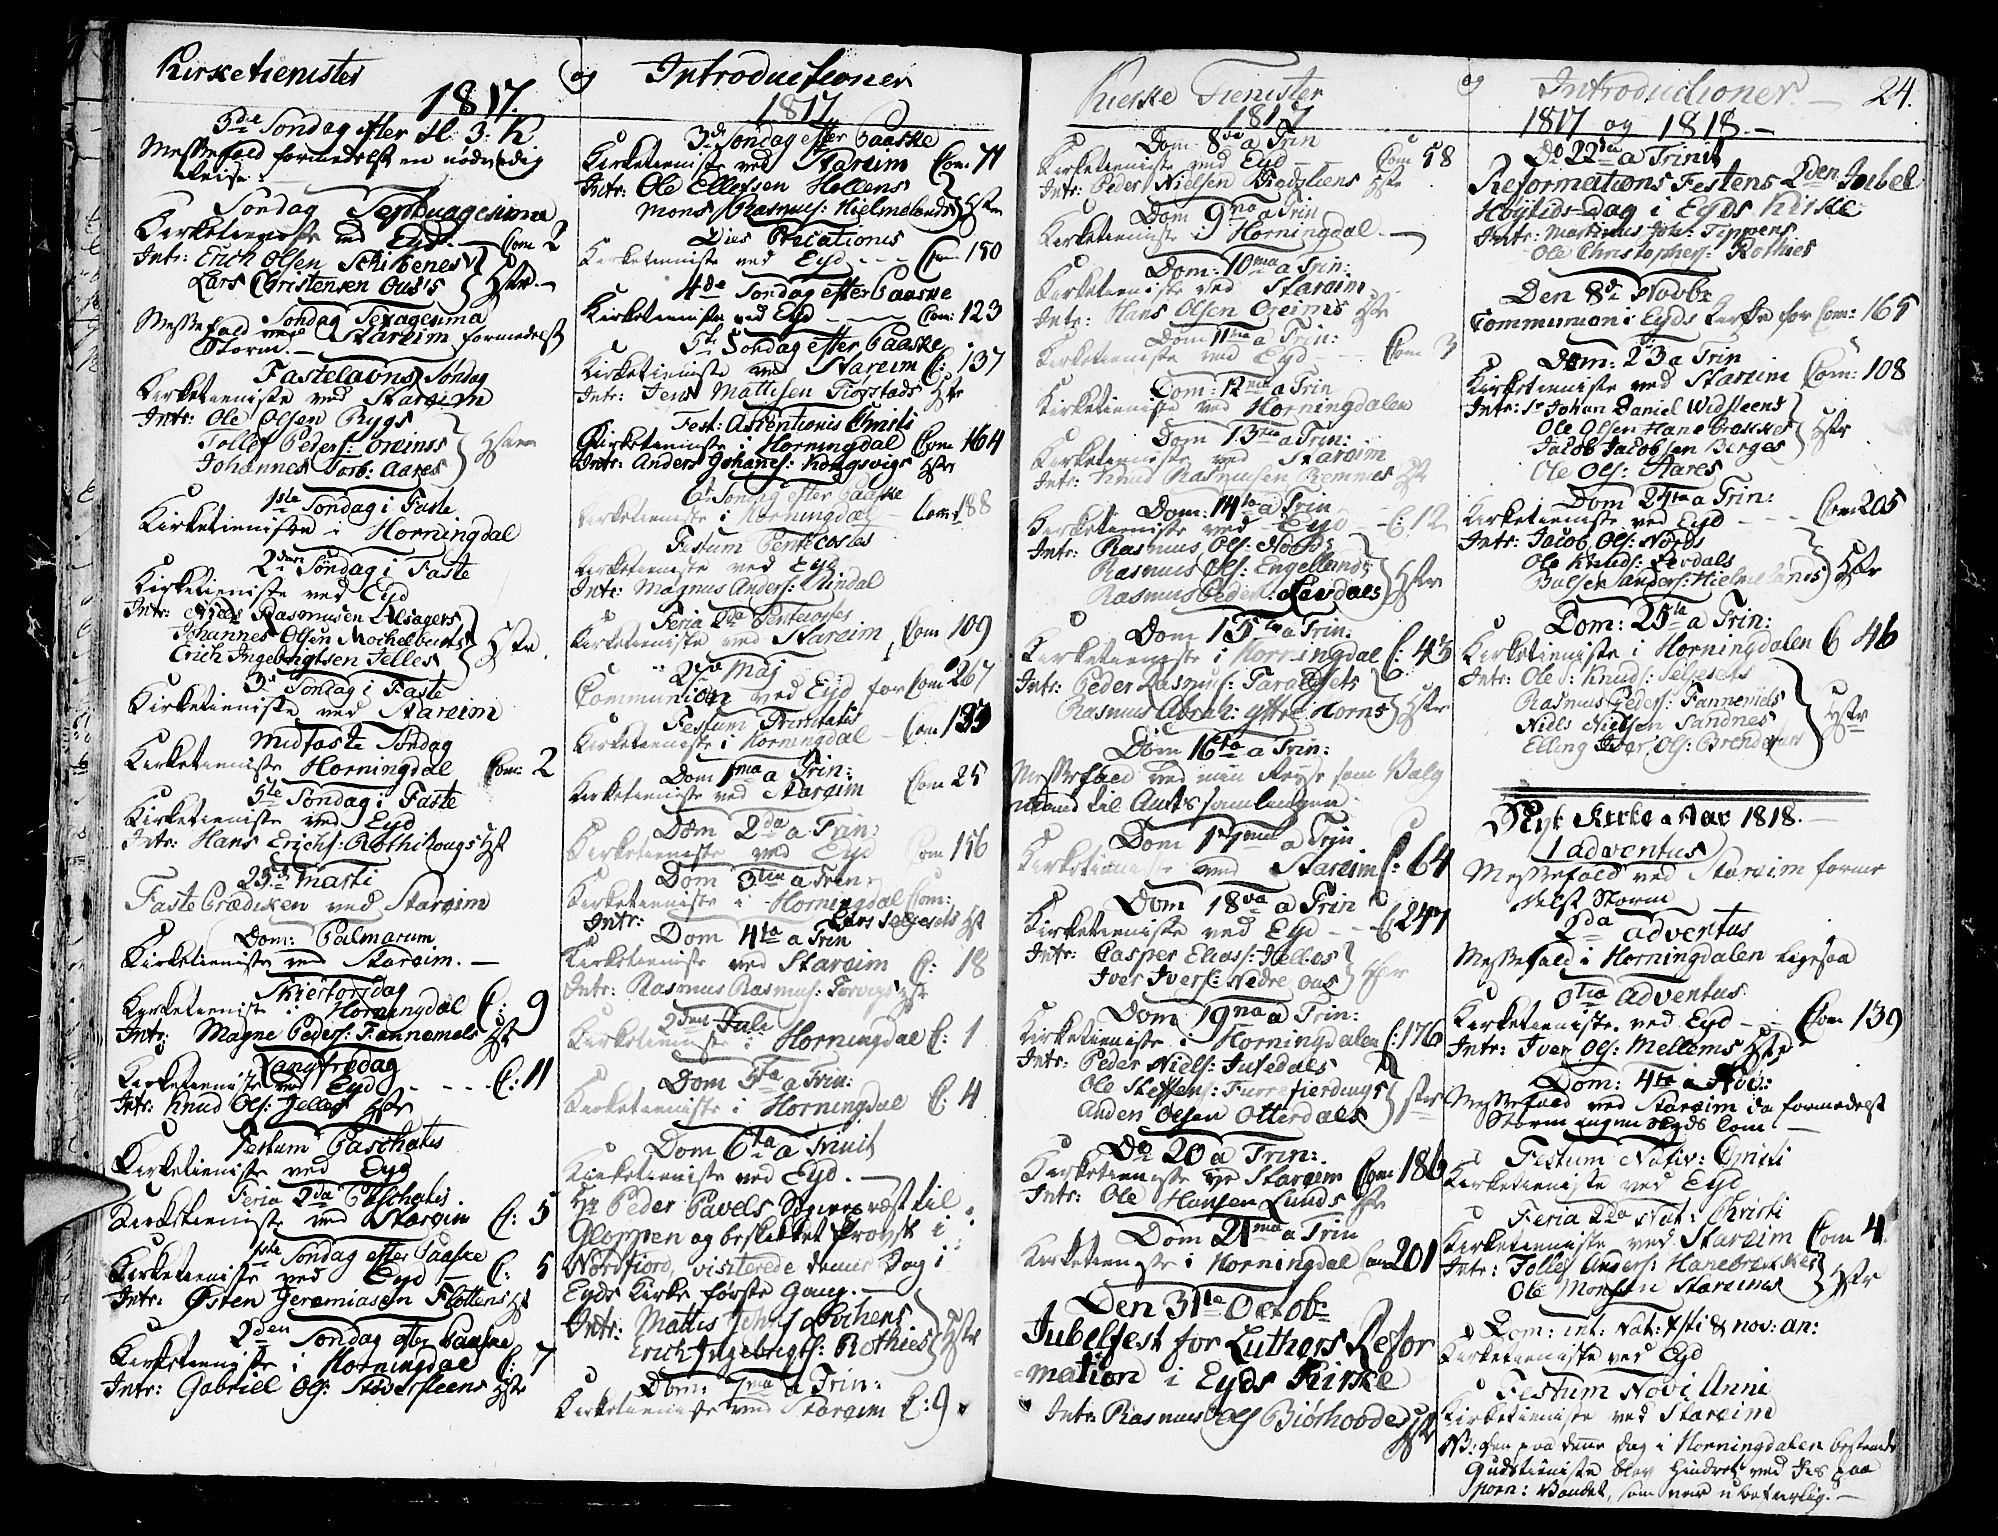 Kirketienister og Introductioner
1817.
3die Søndag efter H: 3: K
Messefald formedelst en nødvendig
Reise.
Søndag Septuagesima
Kirketieniste ved Eyd. — Com 2
Intr: Erich Olsen Schibenes
Lars Christensen Ous's Hstr. —
Søndag Sexagesima
Messefald ved Stareim formedelst
Storm. —
Fastelavns Søndag
Kirketieniste ved Stareim
Intr: Ole Olsen Rygs
Tollef Peders: Oreims
Johannes Jorb: Aares
1ste Søndag i Faste
Kirketieniste i Horningdal
2den Søndag i Faste
Kirketieniste ved Eyd
Intr: Niels Rasmusen Alsagers
Johannes Olsen Mockelbusts
Erich Ingebrigtsen Jelles Hstr.
3die Søndag i Faste
Kirketieniste ved Stareim
Midfaste Søndag
Kirketieniste Horningdal Com: 2
5te Søndag i Faste
Kirketieniste ved Eyd
Intr: Hans Erichs: Rothihougs Hst
25de Marti
Faste Prædiken ved Stareim
Dom: Palmarum
Kirketieniste ved Stareim. —
Skiertorsdag
Kirketieniste i Horningdal C: 9
Intr: Magne Peders: Fannemels Hst
Langfredag
Kirketieniste ved Eyd - - - - C: 11
Intr: Knud Ols: Jelles Hstr
Festum Paschatis
Kirketieniste ved Eyd
Feria 2da Paschatis.
Kirketieniste ved Stareim C: 5
1ste Søndag efter Paaske
Kirketieniste ved Eyd — C: 5
Intr: Østen Jeremiasen Flottens Hst
2den Søndag efter Paaske
Kirketieniste i Horningdal C: 7
Intr: Gabriel Ols: Stoversteens Hstr
1817
3die Søndag efter Paaske
Kirketieniste ved Stareim Com 71
Intr: Ole Ellefsen Hollens
Mons Rasmus: Hielmelands Hstr
Dies Precationis
Kirketieniste ved Eyd - - - Com 150
4de Søndag efter Paaske
Kirketieniste ved Eyd — Com: 123
5te Søndag efter Paaske
Kirketieniste ved Stareim C: 137
Intr: Jens Mattisen Hstr
Fest: Ascentionis Christi
Kirketieniste i Horningdal Com 164
Intr: Anders Johans: Kongsvigs Hstr
6te Søndag efter Paaske
Kirketieniste i Horningdal — Com 188
Festum Pentecostes
Kirketieniste ved Eyd
Intr: Magnus Anders: Nindal
Feria 2da Pentecostes
Kirketieniste ved Stareim Com 109
27de Maj
Communion ved Eyd for Com 267
Festum Trinitatis
Kirketieniste i Horningdal — Com 133
Dom 1ma a Trin:
Kirketieniste ved Stareim Com 25
Dom 2da a Trin:
Kirketieniste ved Eyd Com 156
Dom 3tia a Trin:
Kirketieniste i Horningdal Com:
Intr: Lars Seljesets Hst
Dom 4ta a Trin
Kirketieniste ved Stareim C: 18
Intr: Rasmus Rasmus: Torvigs Hstr
2den Juli
Kirketieniste i Horningdal C: 1
Dom 5ta a Trin:
Kirketieniste i Horningdal C: 4
Dom 6ta a Trinit
Kirketieniste ved Eyd. —
Hr Peder Pavels Sognepræst til
Gloppen og beskikket Provst i
Nordfiord, visiterede denne Dag i
Eyds Kirke første Gang. —
Intr: Mattis Joh: Lothens
Erich Ingebrigts: Rothies Hstr
Dom: 7ma a Trin:
Kirketieniste ved Stareim C: 9
Kirke Tienister og Introductioner. — 24.
1817
Dom 8va a Trin
Kirketieniste ved Eyd — Com 58
Intr: Peder Nielsen Hstr
Dom 9na a Trin
Kirketieniste i Horningdal. —
Dom: 10ma a Trin:
Kirketieniste ved Stareim
Intr: Hans Olsen Oreims Hstr
Dom 11ma a Trin:
Kirketieniste ved Eyd - - Com 3
Dom: 12ma a Trin
Kirketieniste ved Horningdalen
Dom 13tia a Trin:
Kirketieniste ved Stareim
Intr: Knud Rasmusen Remmes Hstr
Dom: 14ta a Trin
Kirketieniste ved Eyd — C: 12
Intr: Rasmus Ols: Noods
Rasmus Ols: Engellands
Rasmus Peders: Levdals Hstr
Dom 15ta a Trin:
Kirketieniste i Horningdal C: 45
Intr: Peder Rasmus: Taraldsets
Rasmus Abrah: Yttre Horns Hstr
Dom 16ta a Trin:
Messefald ved min Reyse som Valg
mand til Amts samlingen
Dom 17ma a Trin
Kirketieniste ved Stareim C: 64
Dom 18va a Trin
Kirketieniste ved Eyd - - C: 247
Intr: Casper Elias: Hellens
Iver Ivers: Nedre Ous Hstr
Dom 19na a Trin:
Kirketieniste i Horningdalen C: 176
Intr: Peder Niels: Jutedals
Ole Steffens: Furrefierdings
Anden Olsen Otterdals Hstr
Do 20 a Trin:
Kirketieniste ved Stareim Com 186
Intr: Ole Hansen Lunds Hstr
Dom 21ma a Trin
Kirketieniste i Horningdal Com 201
Den 31te Octobr
Jubelfest for Luthers Refor
-mation i Eyds Kirke
Intr Rasmus Ols Biørhoodes Hstr
1817 og 1818. —
Do 22da a Trinit
Reformations Festens 2den Jubel
Høytids-Dag i Eyds Kirke
Intr: Martinus Joh: Tippens
Ole Christophers: Rothies
Den 8de Novbr
Communion i Eyds Kirke for Com: 165
Dom: 23 a Trin
Kirketieniste ved Stareim Com: 108
Intr: Sr Johan Daniel Widsteens
Ole Olsen Hanebrekkes
Jacob Jacobsen Berges Hstr
Ole Ols: Aares
Dom 24ta a Trin:
Kirketieniste ved Eyd - - - Com 205
Intr: Jacob Ols: Nords
Ole Knuds: Levdals
Balser Anders: Hielmelands Hstr
Dom: 25ta a Trin:
Kirketieniste i Horningdalen C 46
Intr: Ole Knuds: Seljesets
Rasmus Peders: Fannemels
Niels Nielsen Sandnes
Elling Iver Ols: Hstr
Nyt Kirke-Aar 1818. —
1 adventus
Messefald ved Stareim forme
delst Storm
2da adventus
Messefald i Horningdalen ligesaa
3tia Adventus
Kirketieniste ved Eyd - - Com 139
Intr: Iver Ols: Mellems Hstr
Dom: 4ta a Adv:
Messefald ved Stareim da formedelst
Storm ingen Com —
Festum Nativ: Christi
Kirketieniste ved Eyd
Feria 2da Nat: Christi
Kirketieniste ved Stareim Com 4
Intr: Tolles Anders: Hanebrekkes
Ole Monsen Stareims Hstr
Dom: int: Nat: Xsti & nov: an:
Kirketieniste ved Eyd
Festum Novi Anni
Kirketieniste ved Stareim
NB: den paa denne Dag i Horningdalen bestemte
Gudstieniste blev hindret ved Iis paa
Vandet, som var ubefarlig. —